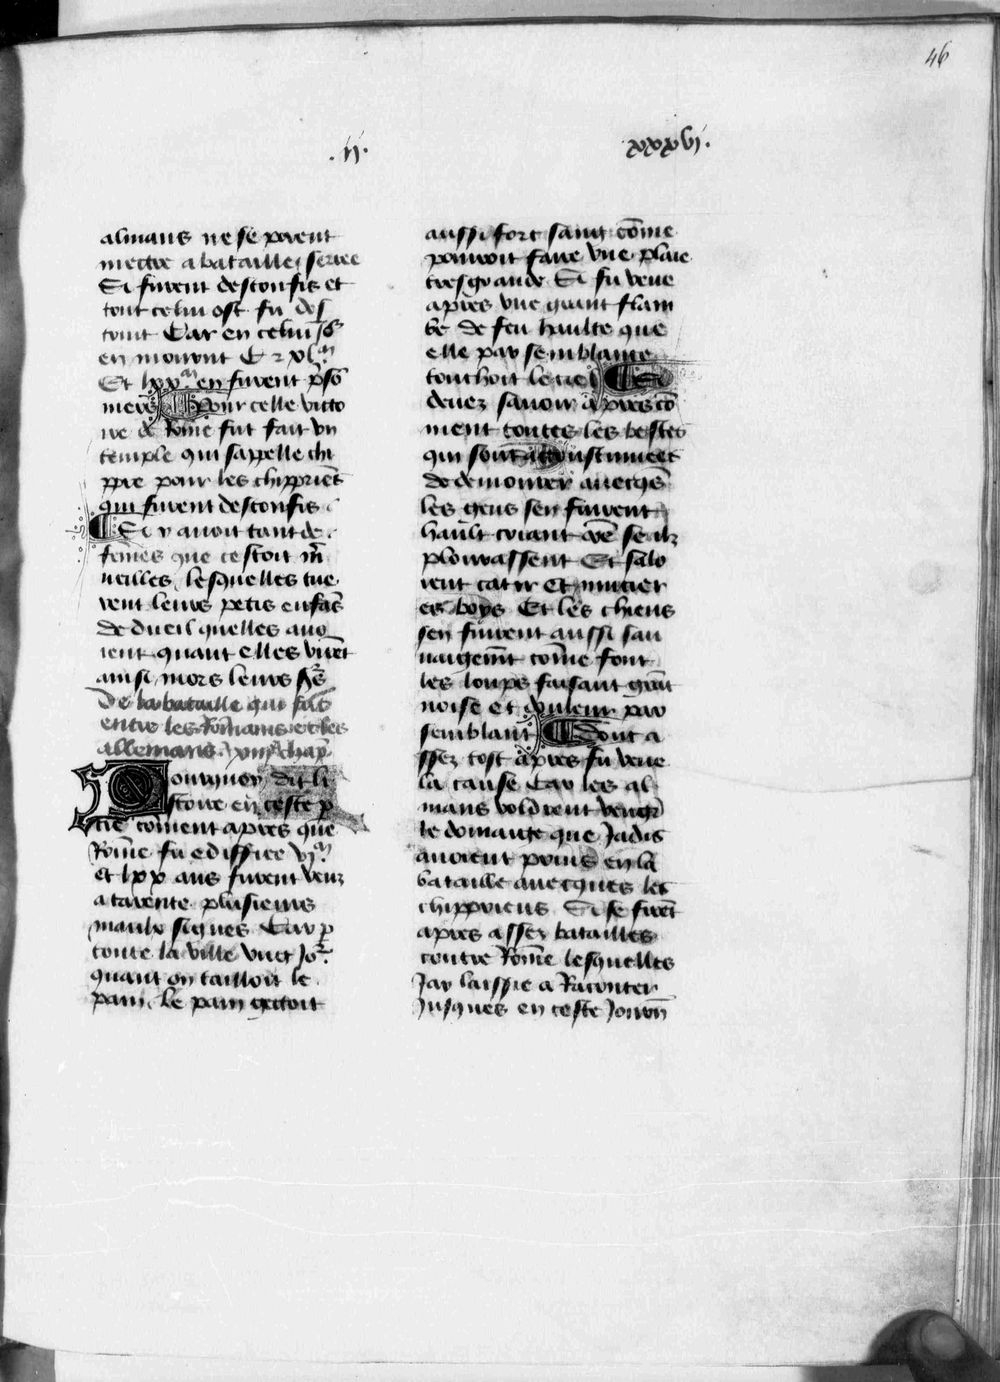 46
.ii.
xxxvi.
almans ne se porent
mectre a bataille serree
Si furent desconfis et
tout celui ost fu des
truit Car en celui io͛
en moururt C ⁊ xl m
Et lxx m en furent p̃so
niers Pour celle victo
ire de Rōme fut fait vn
temple qui sapelle chi
ppre pour les chipprien̄s
qui furent desconfis
Si y auoit tant de
femes que cestoit m̄
ueilles lesquelles tue
rent leurs petis enfās
de dueil quelles auo
ient quant elles virēt
ainsi mors leurs
De la bataille qui fut
entre les Rōmains et les
allemans. chap̄
ourquoy dit li
stoire en ceste p
tie coment apres que
Rōme fu ediffiee vi c
et lxx ans furent veuz
a tarente plusieurs
maulx signes Car p
toute la ville vnet Jo͛
quant on tailloit le
pain. le pain gectoit
aussi fort sang cōme
pourroit faire vne plaie
tresgrande Si fu veue
apres vne grant flam
be de feu haulte que
elle par semblance
touchoit le ciel Si
deuez sauoir apres cō
ment toutes les bestes
qui sont acoustumees
de demourer auecq̄s
les gens sen furent
hault criant cōe se ilz
plourassent Et falo
rent catir et mucier
es boys Et les chiens
sen furent aussi sau
uaigem̄t cōme font
les loups faisant grāt
noise et douleur par
semblant Dont a
ssez tost apres fu veue
la cause Car les al
mans voldrent vengr̄
le domaige que Jadis
auoient prins en la
bataille auecques les
chippriens Si se firēt
apres assez batailles
contre Rōme lesquelles
Jay laissie a Raconter
Jusques en ceste Journ̄